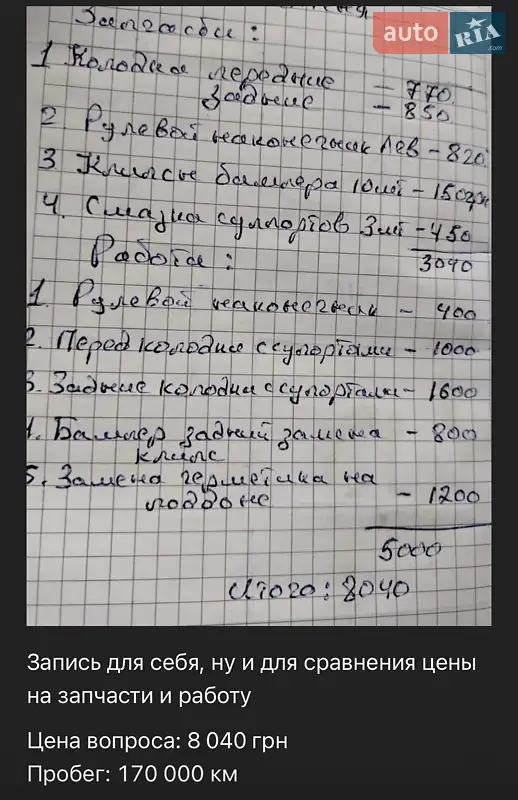 Запчасти:
auto RIA .com
1 Колодки передние - 770
задние - 850
2 Рулевой наконечник лев - 820
3 Клипсы бампера 10шт - 150грн
4. Смазка суппортов 3шт - 450
3040
Работа:
1. Рулевой наконечник - 400
2. Перед колодки с суппортами - 1000
3. Задние колодки с суппортами - 1600
4. Бампер задний замена - 800
клипс
5. Замена герметика на
поддоне - 1200
5000
Итого: 8040
Запись для себя, ну и для сравнения цены
на запчасти и работу
Цена вопроса: 8 040 грн
Пробег: 170 000 км